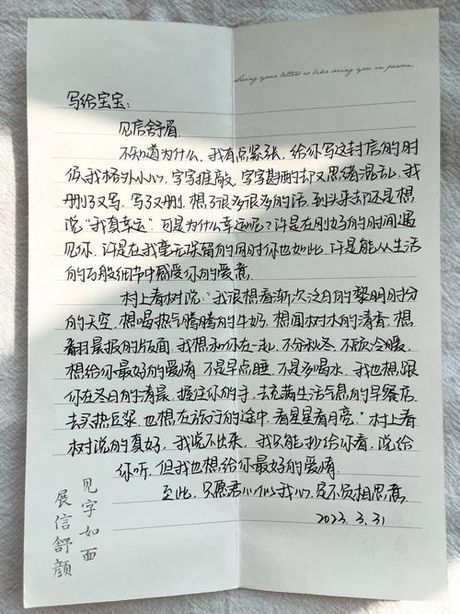 Seeing your letters is like seeing you in person.
写给宝宝:
见信舒眉
不知道为什么,我有点紧张,给你写这封信的时
候我格外小心,字字推敲,字字斟酌却又思绪混乱,我
删了又写,写了又删,想了很多很多的话,到头来却还是想
说"我真幸运"可是为什么幸运呢?许是在刚好的时间遇
见你,许是在我毫无保留的同时你也如此,许是能从生活
的百般细节中感受你的爱意
村上春树说:"我很想看渐次泛白的黎明时分
的天空,想喝热气腾腾的牛奶,想闻树木的清香,想
翻晨报的版面,我想和你在一起,不分秋冬,不顾冷暖,
想给你最好的爱情,不是早点睡,不是多喝水,我也想,跟
你在冬日的清晨,握住你的手,去充满生活气息的早餐店,
去买热豆浆,也想在旅行的途中,看星星看月亮。"村上春
树说的真好,我说不出来,我只能抄给你看,说给
你听,但我也想给你最好的爱情.
至此,只愿君心似我心,定不负相思意.
2023.3.31
见字如面
展信舒颜